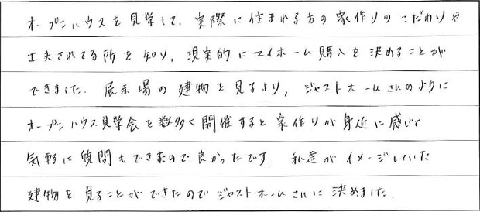 オープンハウスを見学して、実際に住まれる方の家作りのこだわりや
工夫されてる所を知り、現実的にマイホーム購入を決めることが
できました。展示場の建物を見るより、ジャストホームさんのように
オープンハウス見学会を数多く開催すると家作りが身近に感じ
気軽に質問もできたので良かったです 私達がイメージしていた
建物を見ることができたのでジャストホームさんに決めました。